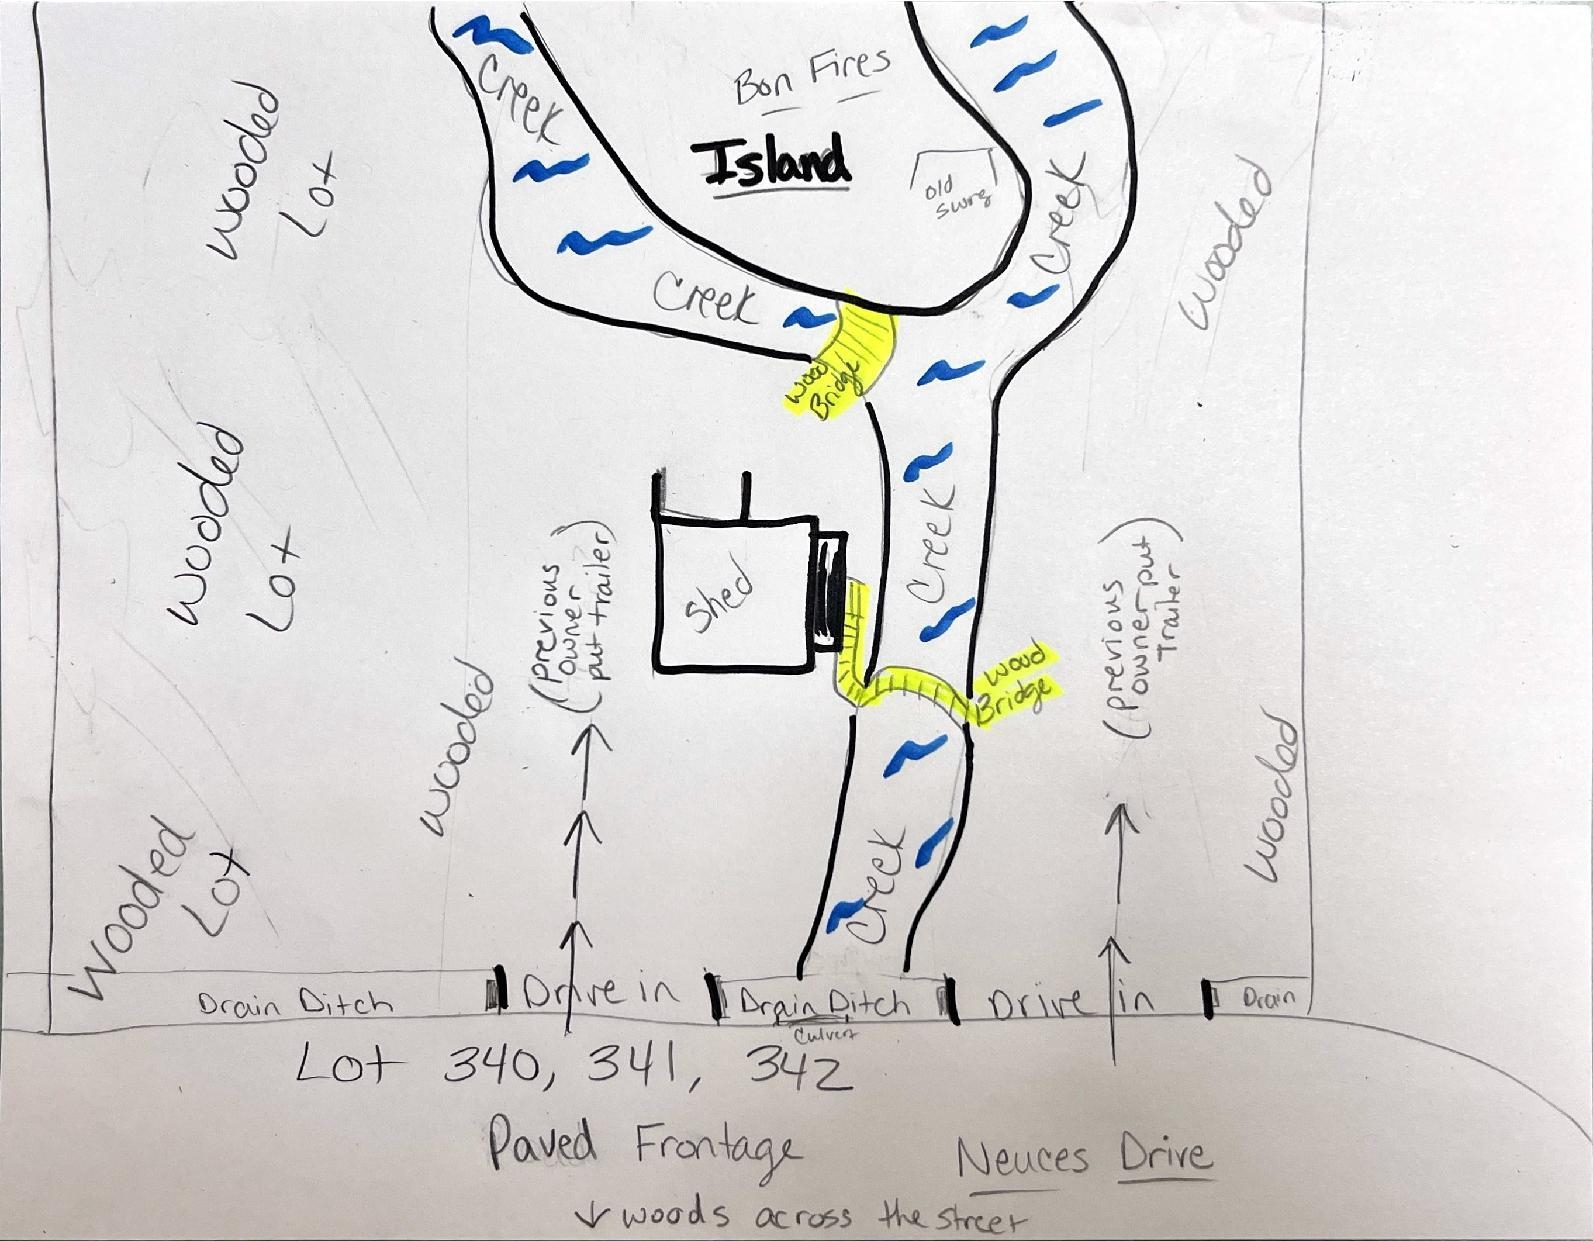 Creek
Bon Fires
Island
old
swing
Creek
Wooded
Lot
Wooded
Creek
Wood
Bridge
Wooded
Lot
Creek
Shed
(Previous
owner
put trailer)
(Previous
owner put
Trailer
Wood
Bridge
Wooded
Wooded
Wooded
Lot
Creek
Drain Ditch
Drive in
Drain Ditch
Drive in
Drain
Culvert
Lot 340, 341, 342
Paved Frontage
Neuces Drive
woods across the street